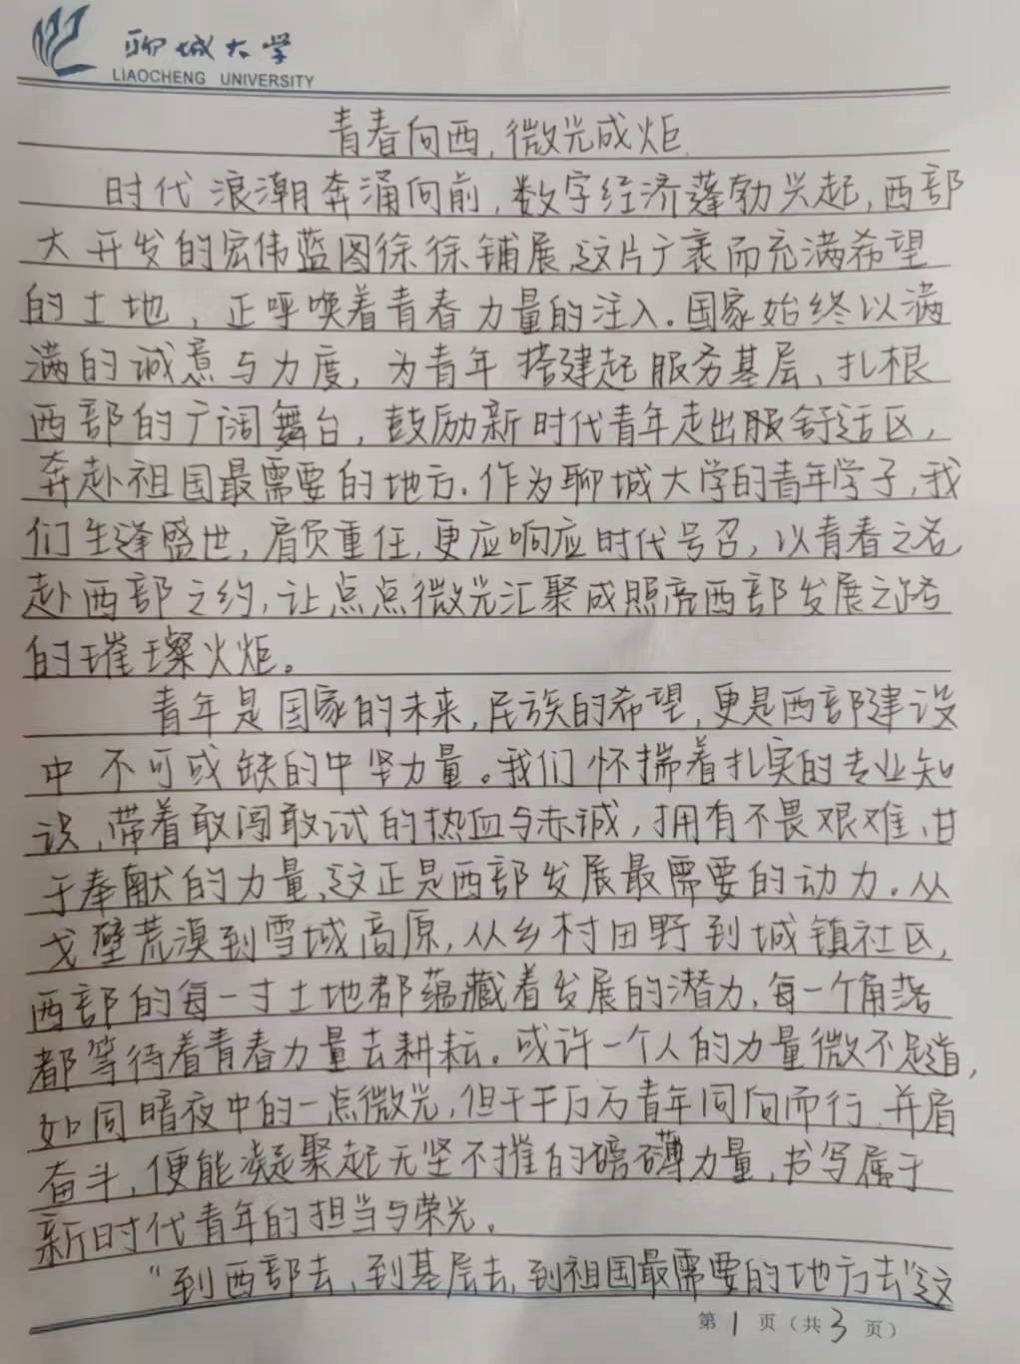 聊城大学
LIAOCHENG UNIVERSITY
青春向西,微光成炬
时代浪潮奔涌向前,数字经济蓬勃兴起,西部
大开发的宏伟蓝图徐徐铺展,这片广袤而充满希望
的土地,正呼唤着青春力量的注入。国家始终以满
满的诚意与力度,为青年搭建起服务基层、扎根
西部的广阔舞台,鼓励新时代青年走出服舒适区,
奔赴祖国最需要的地方.作为聊城大学的青年学子,我
们生逢盛世,肩负重任,更应响应时代号召,以青春之名
赴西部之约,让点点微光汇聚成照亮西部发展之路
的璀璨火炬。
青年是国家的未来,民族的希望,更是西部建设
中不可或缺的中坚力量。我们怀揣着扎实的专业知
识,带着敢闯敢试的热血与赤诚,拥有不畏艰难、甘
于奉献的力量,这正是西部发展最需要的动力.从
戈壁荒漠到雪域高原,从乡村田野到城镇社区,
西部的每一寸土地都蕴藏着发展的潜力,每一个角落
都等待着青春力量去耕耘。或许一个人的力量微不足道,
如同暗夜中的一点微光,但千千万万青年同向而行、并肩
奋斗,便能凝聚起无坚不摧的磅礴力量,书写属于
新时代青年的担当与荣光。
“到西部去,到基层去,到祖国最需要的地方去”这
第1页(共3页)